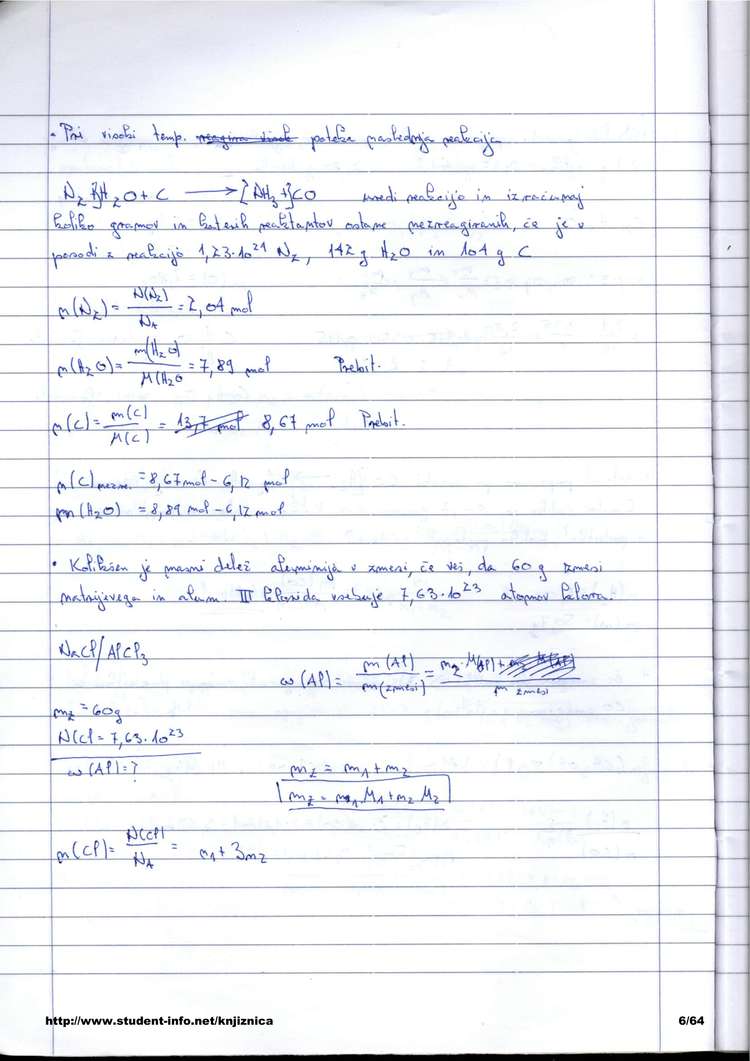 • Pri visoki temp. reagira visok poteka naslednja reakcija
N₂ + 3H₂O + C ⟶ 2NH₃ + 3CO uredi reakcijo in izračunaj
koliko gramov in katerih reaktantov ostane nezreagiranih, če je v
posodi z reakcijo 1,23·10²⁴ N₂, 142 g H₂O in 104 g C
n(N₂) = N(N₂) / N_A = 2,04 mol
n(H₂O) = m(H₂O) / M(H₂O = 7,89 mol Prebit.
n(C) = m(C) / M(C) = 13,7 mol 8,67 mol Prebit.
n(C) nezre. = 8,67 mol - 6,12 mol
m(H₂O) = 8,89 mol - 6,12 mol
• Kolikšen je masni delež aluminija v zmesi, če veš, da 60 g zmesi
natrijevega in alum. III klorida vsebuje 7,63·10²³ atomov klora.
NaCl/AlCl₃
w(Al) = m(Al) / m(zmesi) = n₂·M(Al) / m zmesi
m_z = 60g
N(Cl = 7,63·10²³
w(Al) = ?
m_z = m₁ + m₂
m_z = n₁ M₁ + n₂ M₂
n(Cl) = N(Cl) / N_A = n₁ + 3n₂
http://www.student-info.net/knjiznica 6/64